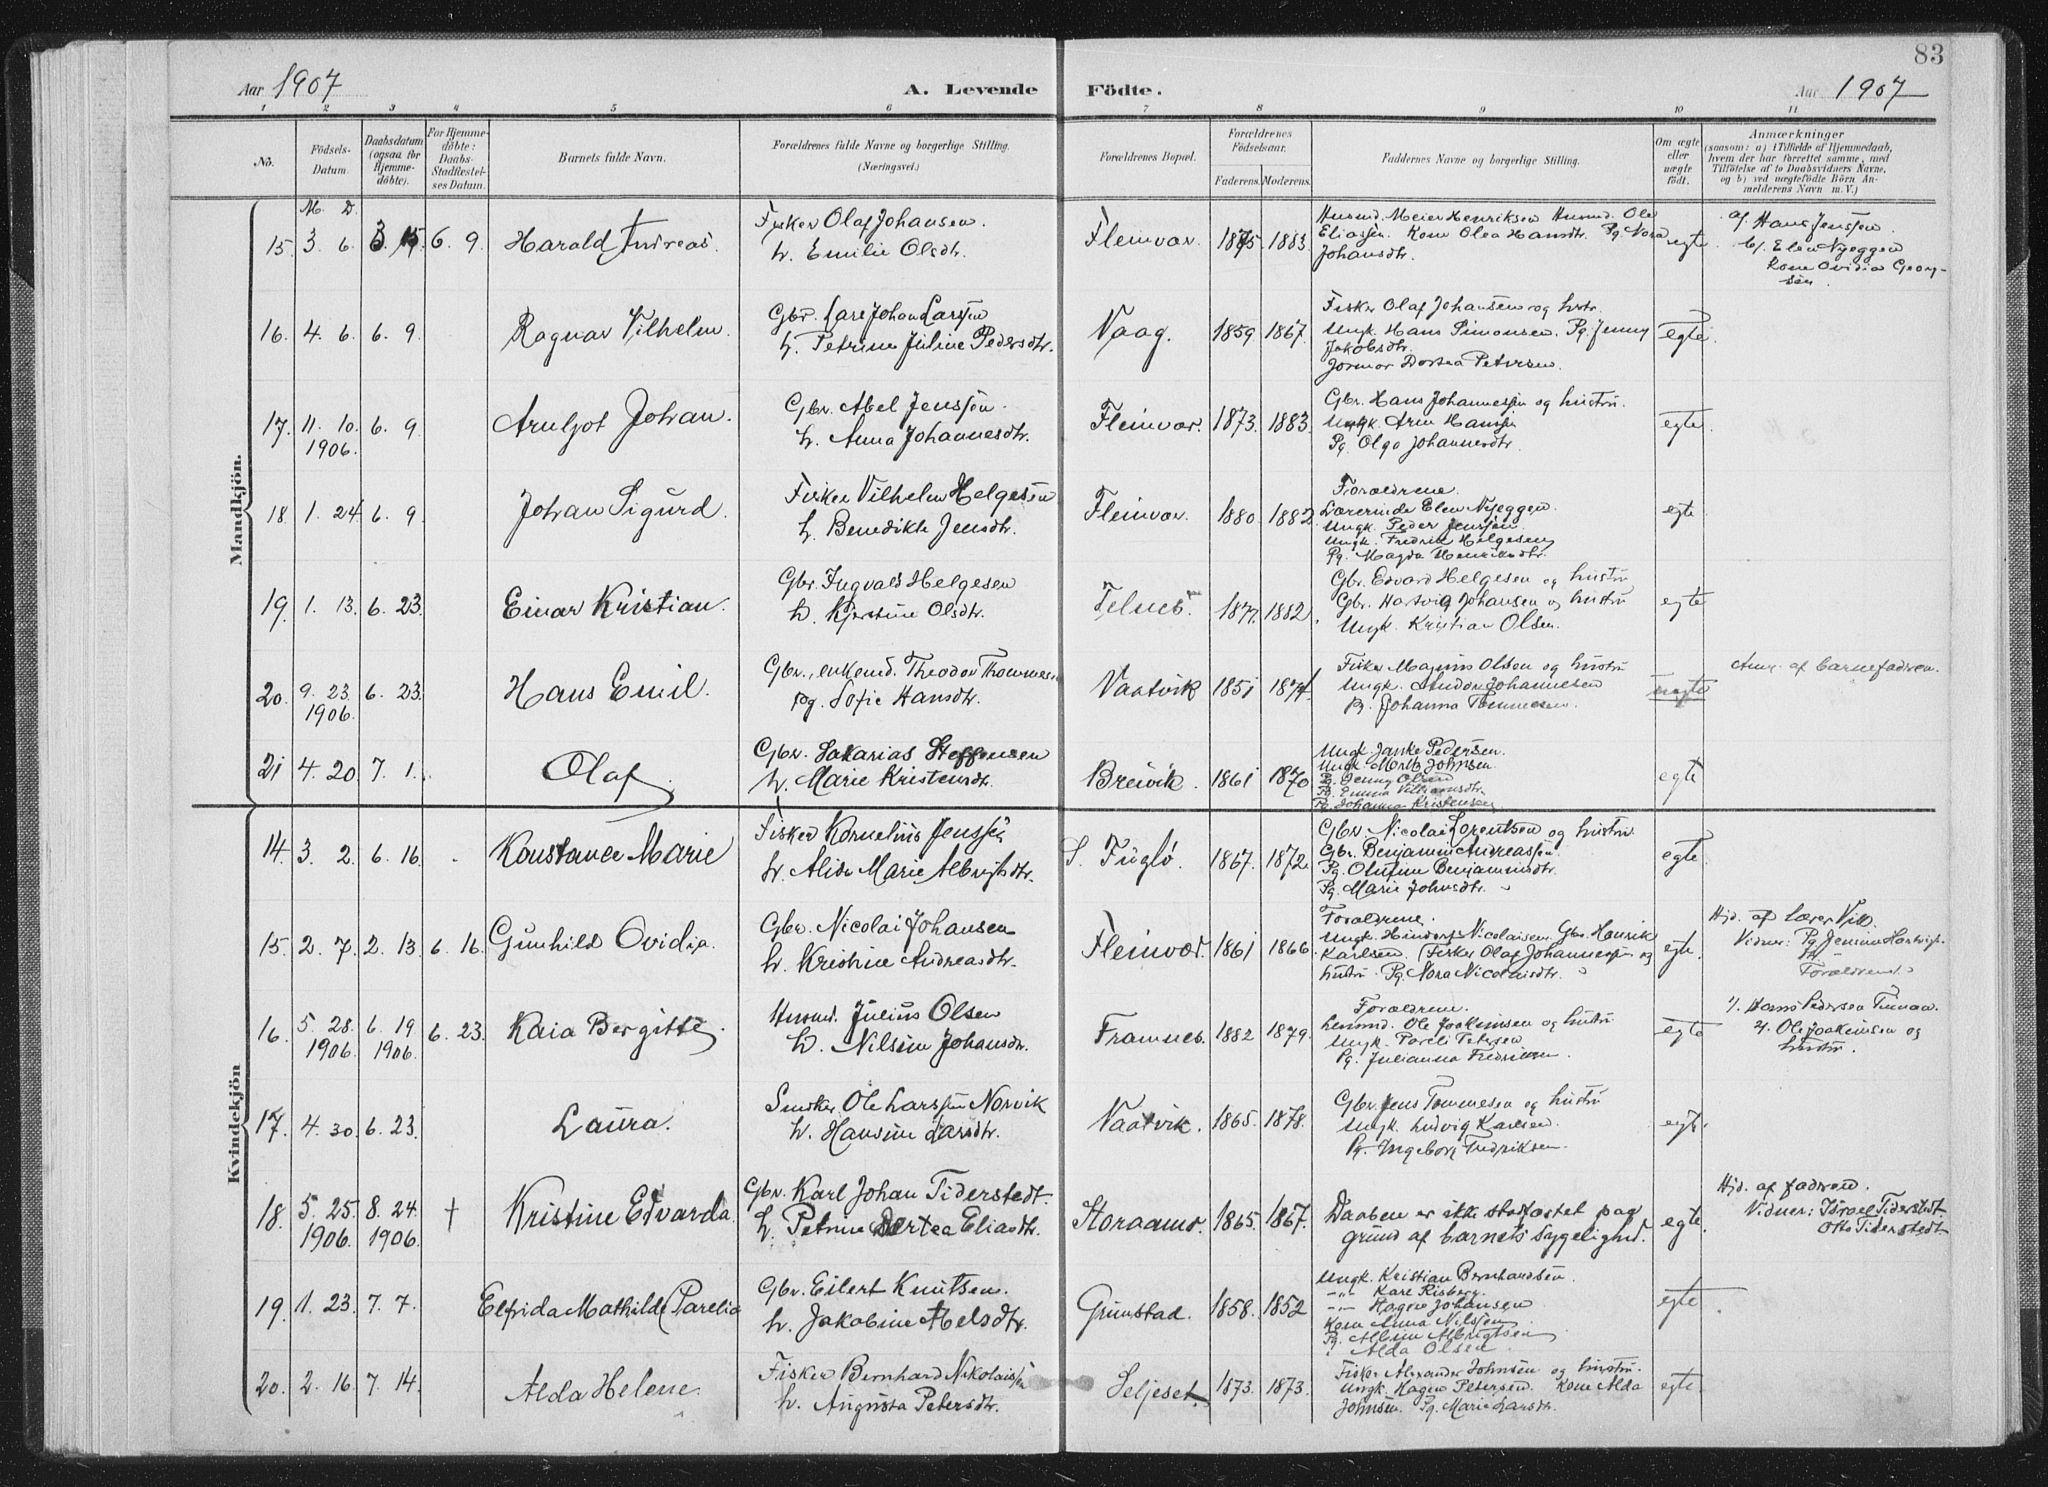 83
Aar 1907
A. Levende Födte.
Aar 1907
1 2 3 4 5 6 7 8 9 10 11
No.
Födsels-Datum.
Daabsdatum (ogsaa for Hjemme-döbte).
For Hjemme-döbte: Daabs-Stadfæstel-ses Datum.
Barnets fulde Navn.
Forældrenes fulde Navne og borgerlige Stilling.
(Næringsvei.)
Forældrenes Bopæl.
Forældrenes Födselsaar.
Faderens. Moderens.
Faddernes Navne og borgerlige Stilling.
Om ægte eller uægte födt.
Anmærkninger
(saasom: a) i Tilfælde af Hjemmedaab, hvem der har forrettet samme, med Tilföielse af to Daabsvidners Navne, og b) ved uægtefödte Börn An-melderens Navn m. V.)
Mandkjön.
M. D.
15. 3. 6. 3. 15. 6. 9. Harald Andreas.
Fisker Olaf Johansen.
h. Emilie Olsdtr.
Fleinvær. 1875 1883.
Husmd. Meier Henriksen Husmd. Ole
Eliassen. Kone Olea Hansdtr. Pg. Nora
Johansdtr.
egte.
a/. Hans Jenssen
b/. Elen Nyeggen
Kone Ovidia Georg-
sen.
16. 4. 6. 6. 9. Ragnar Vilhelm.
Gbr. Lars Johan Larssen
h. Petrine Juline Pedersdtr.
Vaag. 1859 1867.
Fisker Olaf Johansen og hstr.
Ungk. Hans Simonsen. Pg. Jenny
Jakobsdtr.
Jormor Dortea Petersen.
egte.
17. 11. 10. 1906. 6. 9 Arnljot Johan.
Gbr. Abel Jenssen.
h. Anna Johannesdtr.
Fleinvær. 1873. 1883.
Gbr. Hans Johannessen og hustru.
Ungk. Arne Hanssen
Pg. Olga Johannesdtr.
egte.
18. 1. 24. 6. 9. Johan Sigurd.
Fisker Vilhelm Helgesen
h. Benedikte Jensdtr.
Fleinvær. 1880. 1882.
Forældrene.
Lærerinde Elen Nyeggen.
Ungk. Peder Jenssen.
Ungk. Fredrik Helgesen
Pg. Magda Henriksdtr.
egte
19. 1. 13. 6. 23. Einar Kristian.
Gbr. Ingvald Helgesen
h. Kjerstine Olsdtr.
Felnes. 1877. 1882.
Gbr. Edvard Helgesen og hustru
Gbr. Hartvig Johansen og hustru
Ungk. Kristian Olsen.
egte
20. 9. 23. 1906. 6. 23. Hans Emil.
Gbr., enkemd. Theodor Thommesen
Pg. Sofie Hansdtr.
Vaatvik 1851 1874.
Fisker Magnus Olsen og hustru
Ungk. Andor Johannesen
Pg. Johanna Tommesen.
uegte
Anm. af barnefadren.
21 4. 20. 7. 1. Olaf.
Gbr. Sakarias Steffensen
h. Marie Kristensdtr.
Breivik. 1861 1870
Ungk. Janke Pedersen.
Ungk. Morts Johnsen.
Pg. Jenny Olsen
Pg. Emma Villiamsdtr.
Pg. Johanna Kristensen
egte
Kvindekjön
14. 3. 2. 6. 16. Konstance Marie
Fisker Kornelius Jenssen
h. Alida Marie Albrigtsdtr.
S. Fuglö. 1867. 1872.
Gbr. Nicolai Lorentsen og hustru.
Gbr. Benjamin Andreassen.
Pg. Olufine Benjaminsdtr.
Pg. Marie Johnsdtr.
egte.
15. 2. 7. 2. 13. 6. 16. Gunhild Ovidia.
Gbr. Nicolai Johansen
h. Kristine Andreasdtr.
Fleinvær. 1861 1866.
Forældrene.
Ungk. Hindorf Nicolaisen. Gbr. Henrik
Karlsen. Fisker Olaf Johannessen og
hustru. Pg. Nora Nicolaisdtr.
egte.
Hjd. af lærer Vik.
Vidner: Pg. Jemine Hartvig-
Forældrene.
16. 5. 28. 1906. 6. 19 1906. 6. 23. Kaia Bergitte.
Husmd. Julius Olsen
h. Nilsine Johansdtr.
Framnes. 1882 1879.
Forældrene.
Husmd. Ole Joakimsen og hustru
Ungk. Pareli Petersen
Pg. Julianna Fredriksen.
egte
1/. Hans Pedersen
2/. Ole Joakimsen og
hustru.
17. 4. 30. 6. 23. Laura.
Smdker Ole Larssen Norvik
h. Hansine Larsdtr.
Vaatvik. 1865. 1878.
Gbr. Jens Tommesen og hustru
Ungk. Ludvig Karlsen.
Pg. Ingeborg Fredriksen.
egte.
18. 5. 25. 1906. 8. 24. 1906. † Kristine Edvarda.
Gbr. Karl Johan Tiderstedt.
h. Petrine Dortea Eliasdtr.
Storaamo. 1865. 1867.
Daaben er ikke stadfæstet paa
grund af barnets sygelighed.
egte.
Hjd. af fadren.
Vidner: Israel Tiderstedt.
Otto Tiderstedt
19. 1. 23. 7. 7. Elfrida Mathilde Parelia
Gbr. Eilert Knutsen.
h. Jakobine Abelsdtr.
Grimstad. 1858. 1852
Ungk. Kristian Bernhardsen.
-"- Kare Risberg.
-"- Hagen Johansen
Kone Anna Nilssen
Pg. Albine Albrigtsen
" Alda Olsen.
egte.
20. 2. 16. 7. 14. Alda Helene.
Fisker Bernhard Nikolaissen
h. Augusta Petersdtr.
Seljeset. 1873. 1873.
Fisker Alexander Johnsen og hustru.
Ungk. Hagen Petersen. Kone Alda
Johnsen. Pg. Marie Larsdtr.
egte.